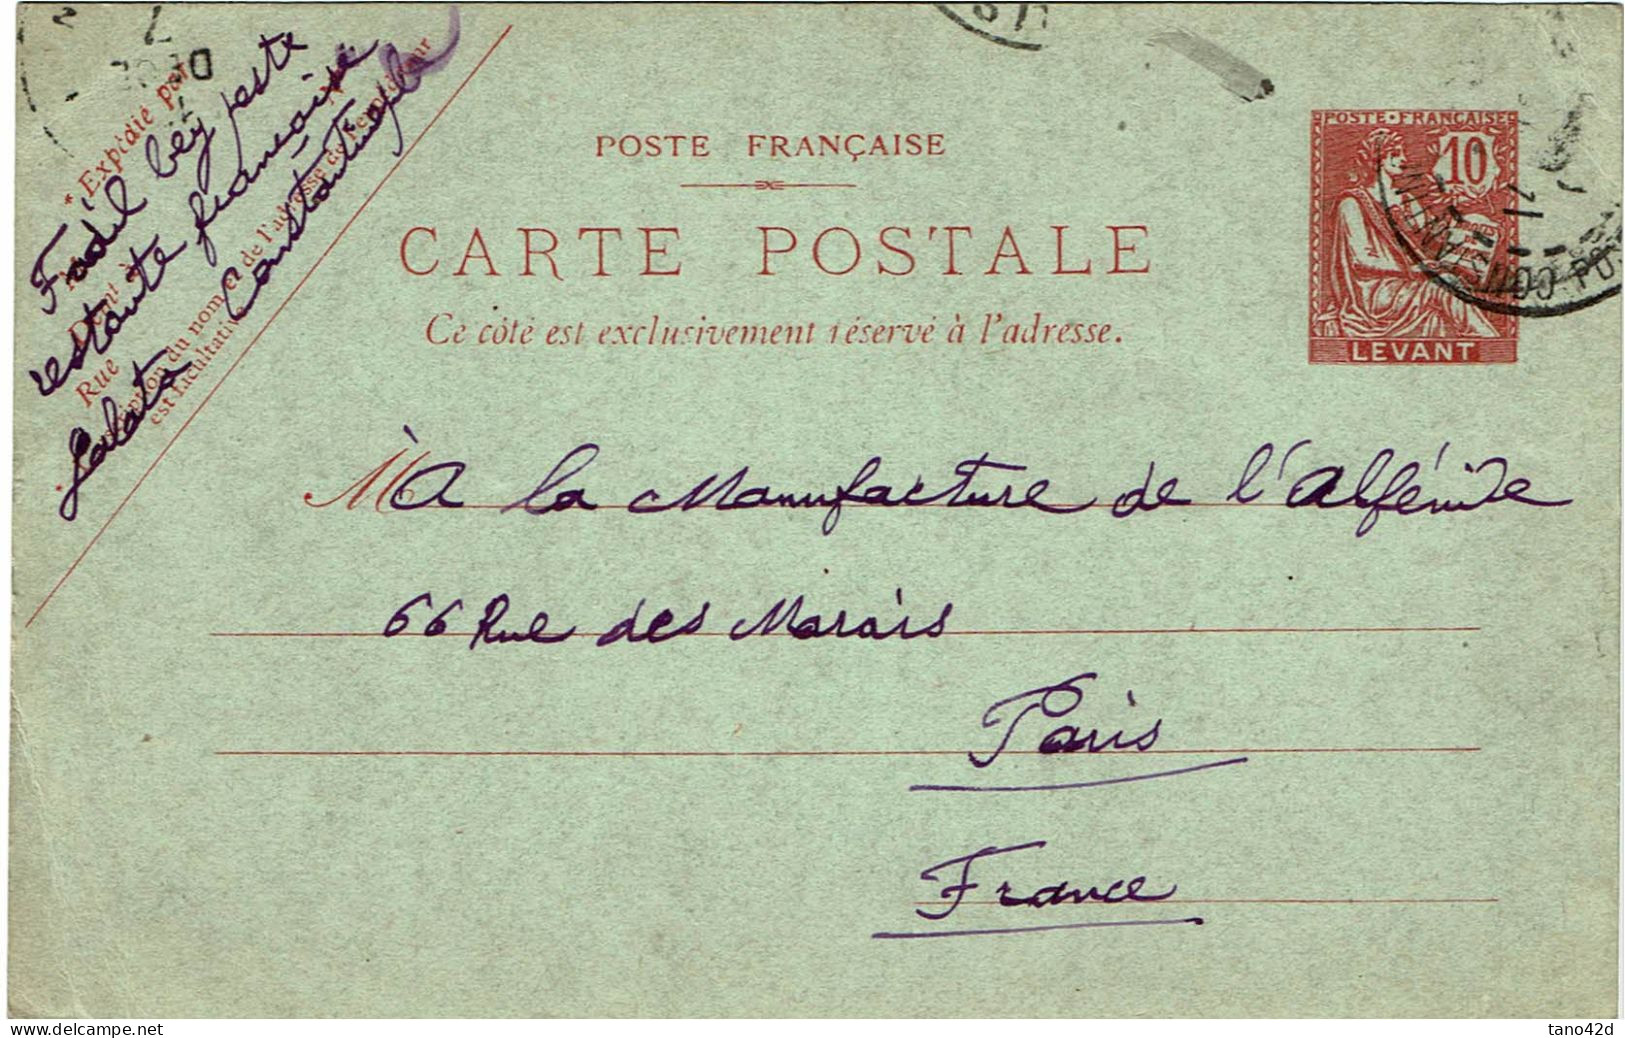 * Expédié par
Fadil bey poste
restante française
Galata Constantinople
Rue
est facultative
POSTE FRANÇAISE
CARTE POSTALE
Ce côté est exclusivement réservé à l'adresse.
POSTE • FRANÇAISE
10
LEVANT
M
À la Manufacture de l'Alfénide
66 Rue des Marais
Paris
France
https://www.delcampe.net
tano42d